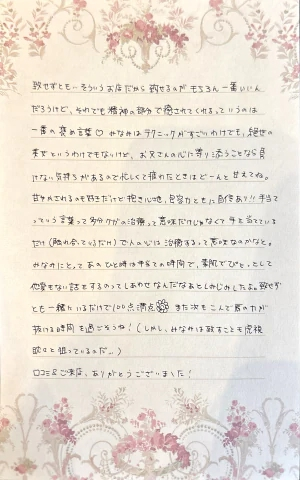 致せずともいそういうお店だから致せるのがもちろん一番いいん
だろうけど、それでも精神の部分で癒されてくれるっていうのは
一番の褒め言葉♡ みなみはテクニックがすごいわけでも、絶世の
美女というわけでもないけど、お兄さんの心に寄り添うことなら負
けない気持ちがあるので忙しくて疲れたときはどーんと甘えてね。
甘やかされるのも好きだけど抱き心地、包容力ともに自信あり!! 手当て
っていう言葉って多分ケガの治療って意味だけじゃなくて手を当てている
だけ(触れ合っているだけ)で人の心は治療するって意味なのかなと。
みなみにとってあのひと時は手当ての時間で、素肌でぴとっとして
他愛もない話をするのってしあわせなんだなあとしみじみしたよ。致せず
とも一緒にいるだけで100点満点 また次もこんで肩の力が
抜ける時間を過ごそうね!(しかし、みなみは致すことも虎視
眈々と狙っているのだ..)
口コミ&ご来店、ありがとうございました!